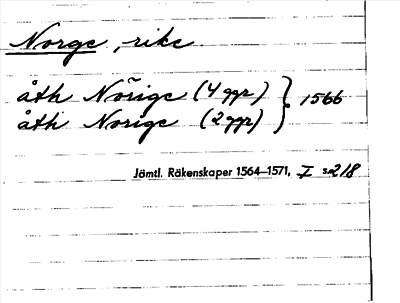 Norge, rike
åth Nor̃ige (4 ggr) } 1566
åth Norige (2 ggr)
Jömtl. Räkenskaper 1564–1571, I s. 218